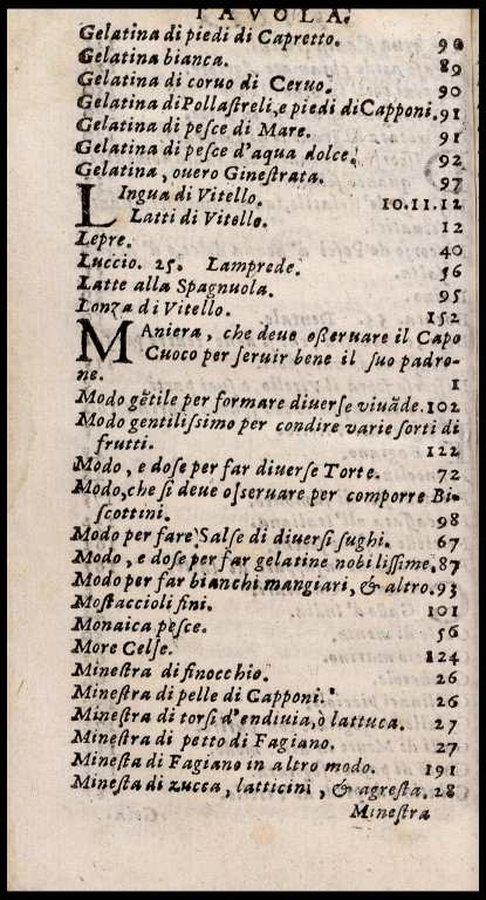 TAVOLA.
Gelatina di piedi di Capretto. 90
Gelatina bianca. 89
Gelatina di coruo di Ceruo. 90
Gelatina di Pollaſtreli, e piedi di Capponi. 91
Gelatina di peſce di Mare. 91
Gelatina di peſce d'aqua dolce. 92
Gelatina, ouero Gineſtrata. 97
LIngua di Vitello. 10.11.12
Latti di Vitello. 12
Lepre. 40
Luccio. 25. Lamprede. 56
Latte alla Spagnuola. 95
Lonza di Vitello. 152
MAniera, che deue oßeruare il Capo
Cuoco per ſeruir bene il ſuo padro-
ne. 1
Modo gẽtile per formare diuerſe viuãde. 102
Modo gentiliſsimo per condire varie ſorti di
frutti. 122
Modo, e doſe per far diuerſe Torte. 72
Modo, che ſi deue oſseruare per comporre Bi-
ſcottini. 98
Modo per fare Salſe di diuerſi ſughi. 67
Modo, e doſe per far gelatine nobiliſſime. 87
Modo per far bianchi mangiari, & altro. 93
Moſtaccioli fini. 101
Monaica peſce. 56
More Celſe. 124
Mineſtra di finocchio. 26
Mineſtra di pelle di Capponi. 26
Mineſtra di torſi d'endiuia, ò lattuca. 27
Mineſtra di petto di Fagiano. 27
Mineſta di Fagiano in altro modo. 191
Mineſta di zucca, latticini, & agreſta. 28
Mineſtra